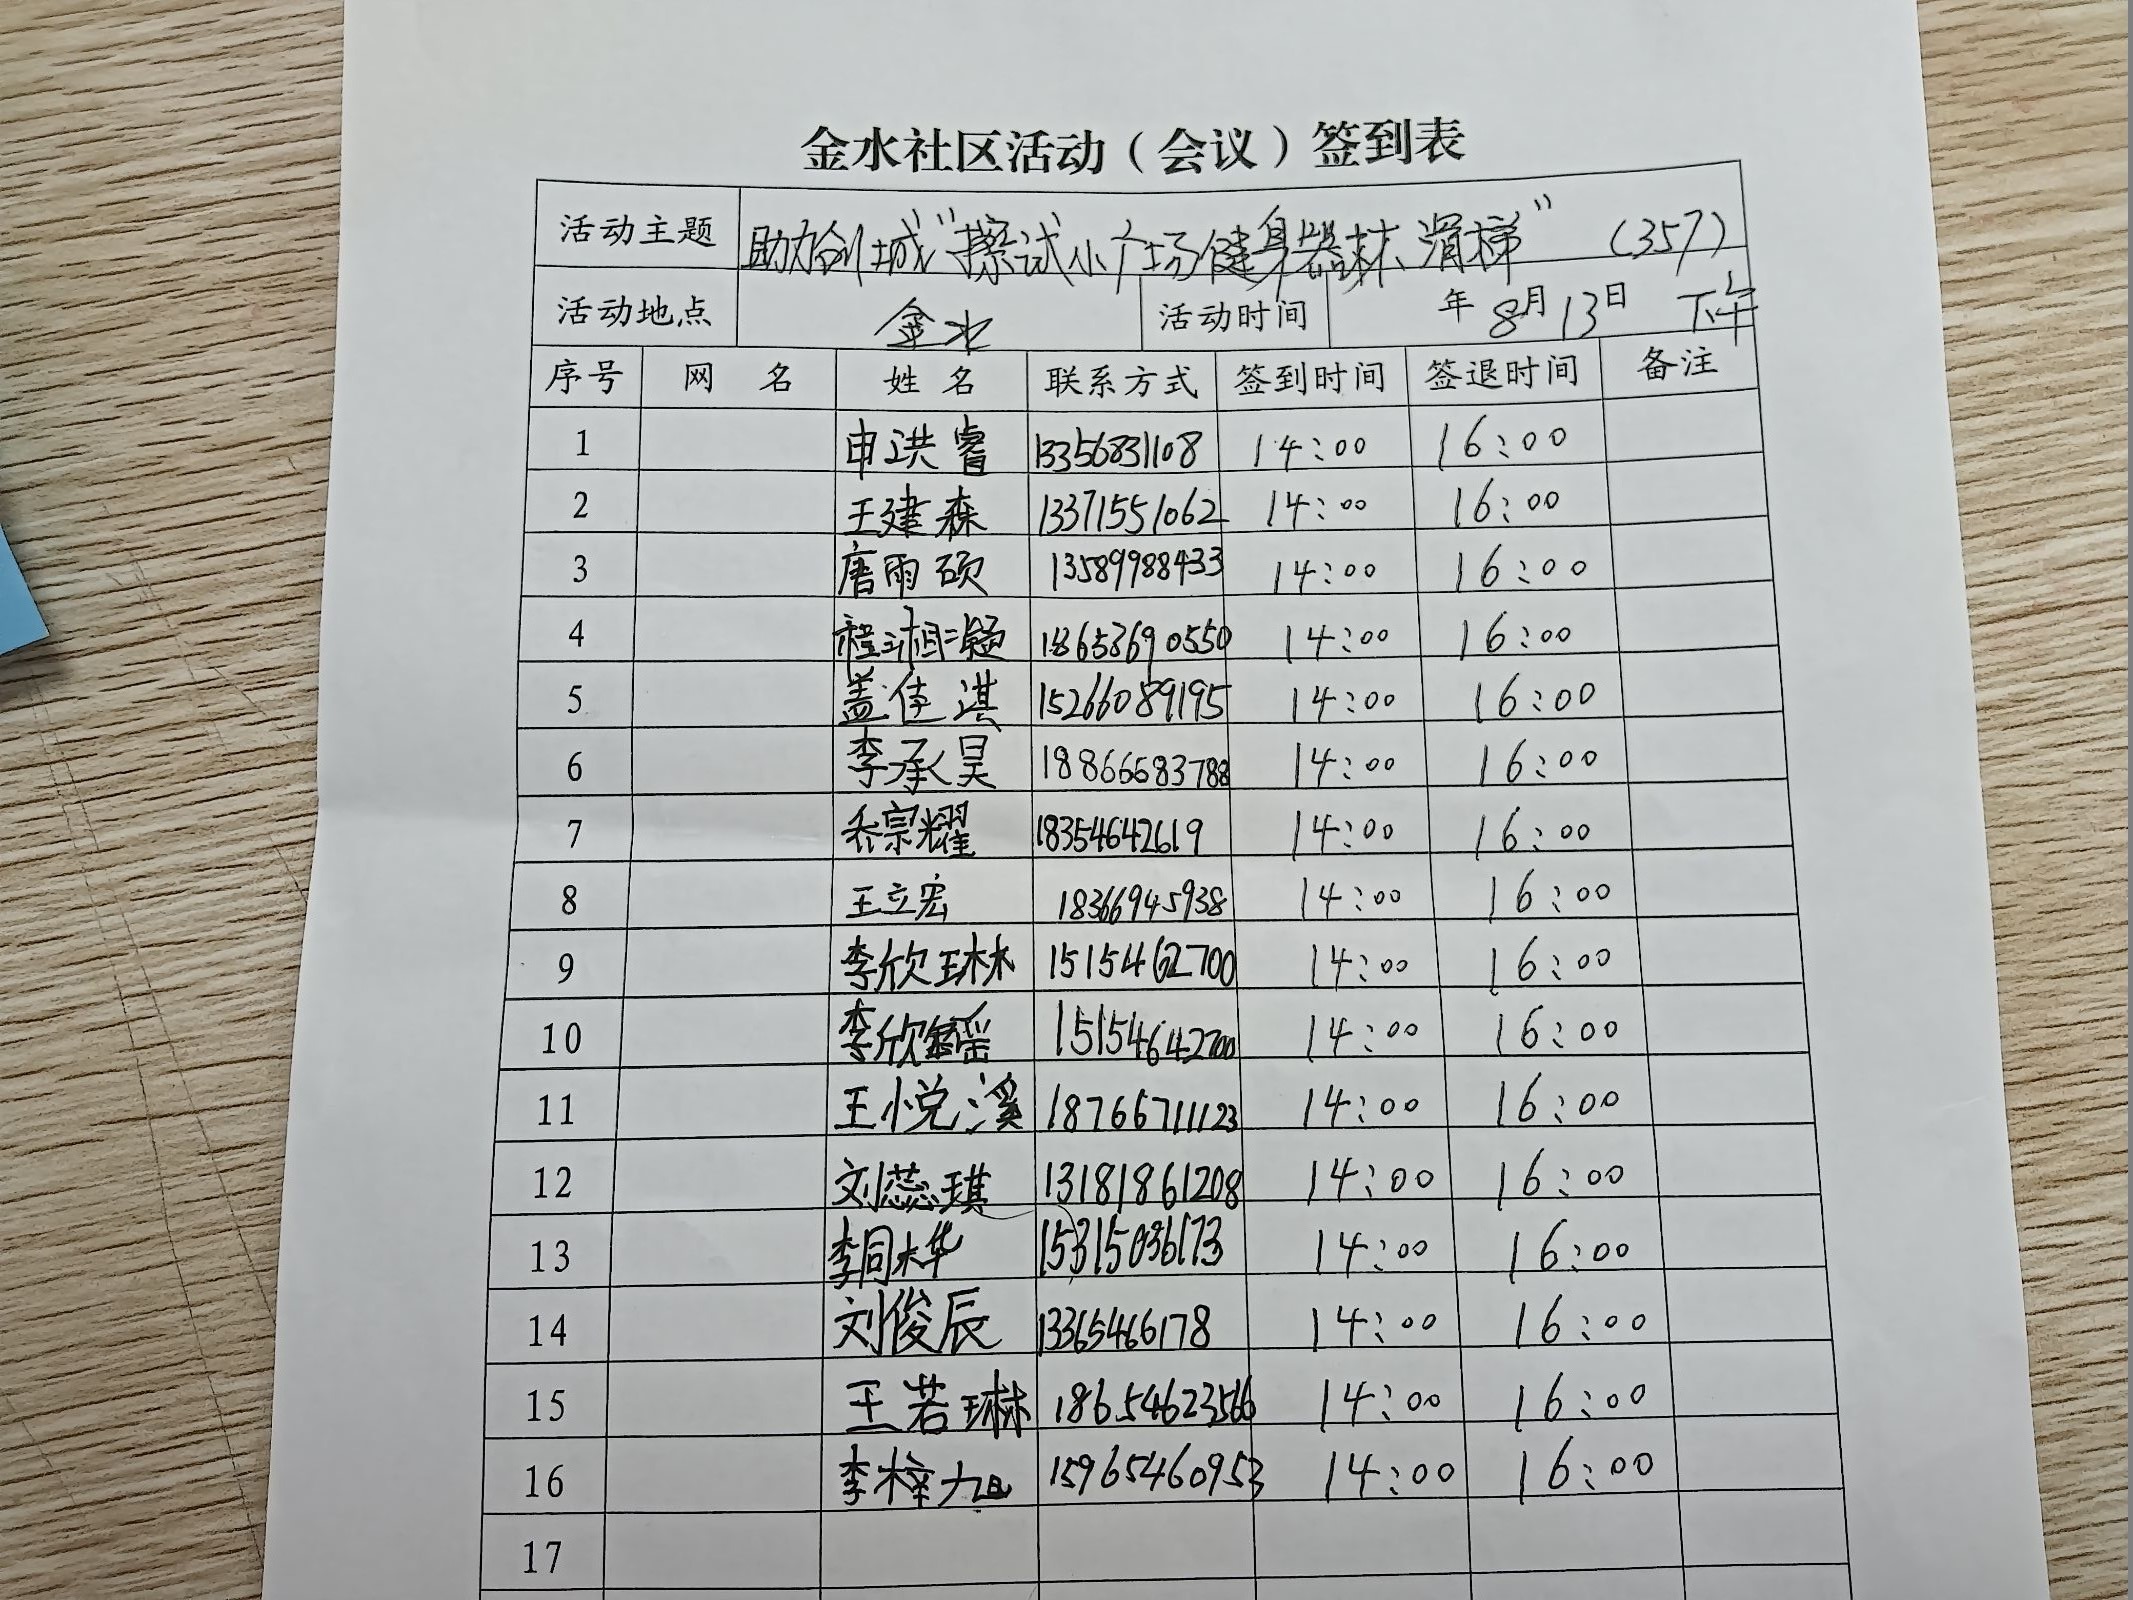 金水社区活动（会议）签到表
活动主题 助力创城“擦试小广场健身器材、滑梯” （357）
活动地点 金水 活动时间 年 8月13日 下午
序号 网 名 姓 名 联系方式 签到时间 签退时间 备注
1 申洪睿 13356831108 14:00 16:00
2 王建森 13371551062 14:00 16:00
3 唐雨硕 13589988433 14:00 16:00
4 程湘凝 18653690550 14:00 16:00
5 盖佳淇 15266089195 14:00 16:00
6 李承昊 18866683788 14:00 16:00
7 乔宗耀 18354642619 14:00 16:00
8 王立宏 18366945938 14:00 16:00
9 李欣琳 15154662700 14:00 16:00
10 李欣瑶 15154642700 14:00 16:00
11 王悦溪 18766711123 14:00 16:00
12 刘蕊琪 13181861208 14:00 16:00
13 李同桦 15315036173 14:00 16:00
14 刘俊辰 13365466178 14:00 16:00
15 王若琳 18654623566 14:00 16:00
16 李梓旭 15965460953 14:00 16:00
17